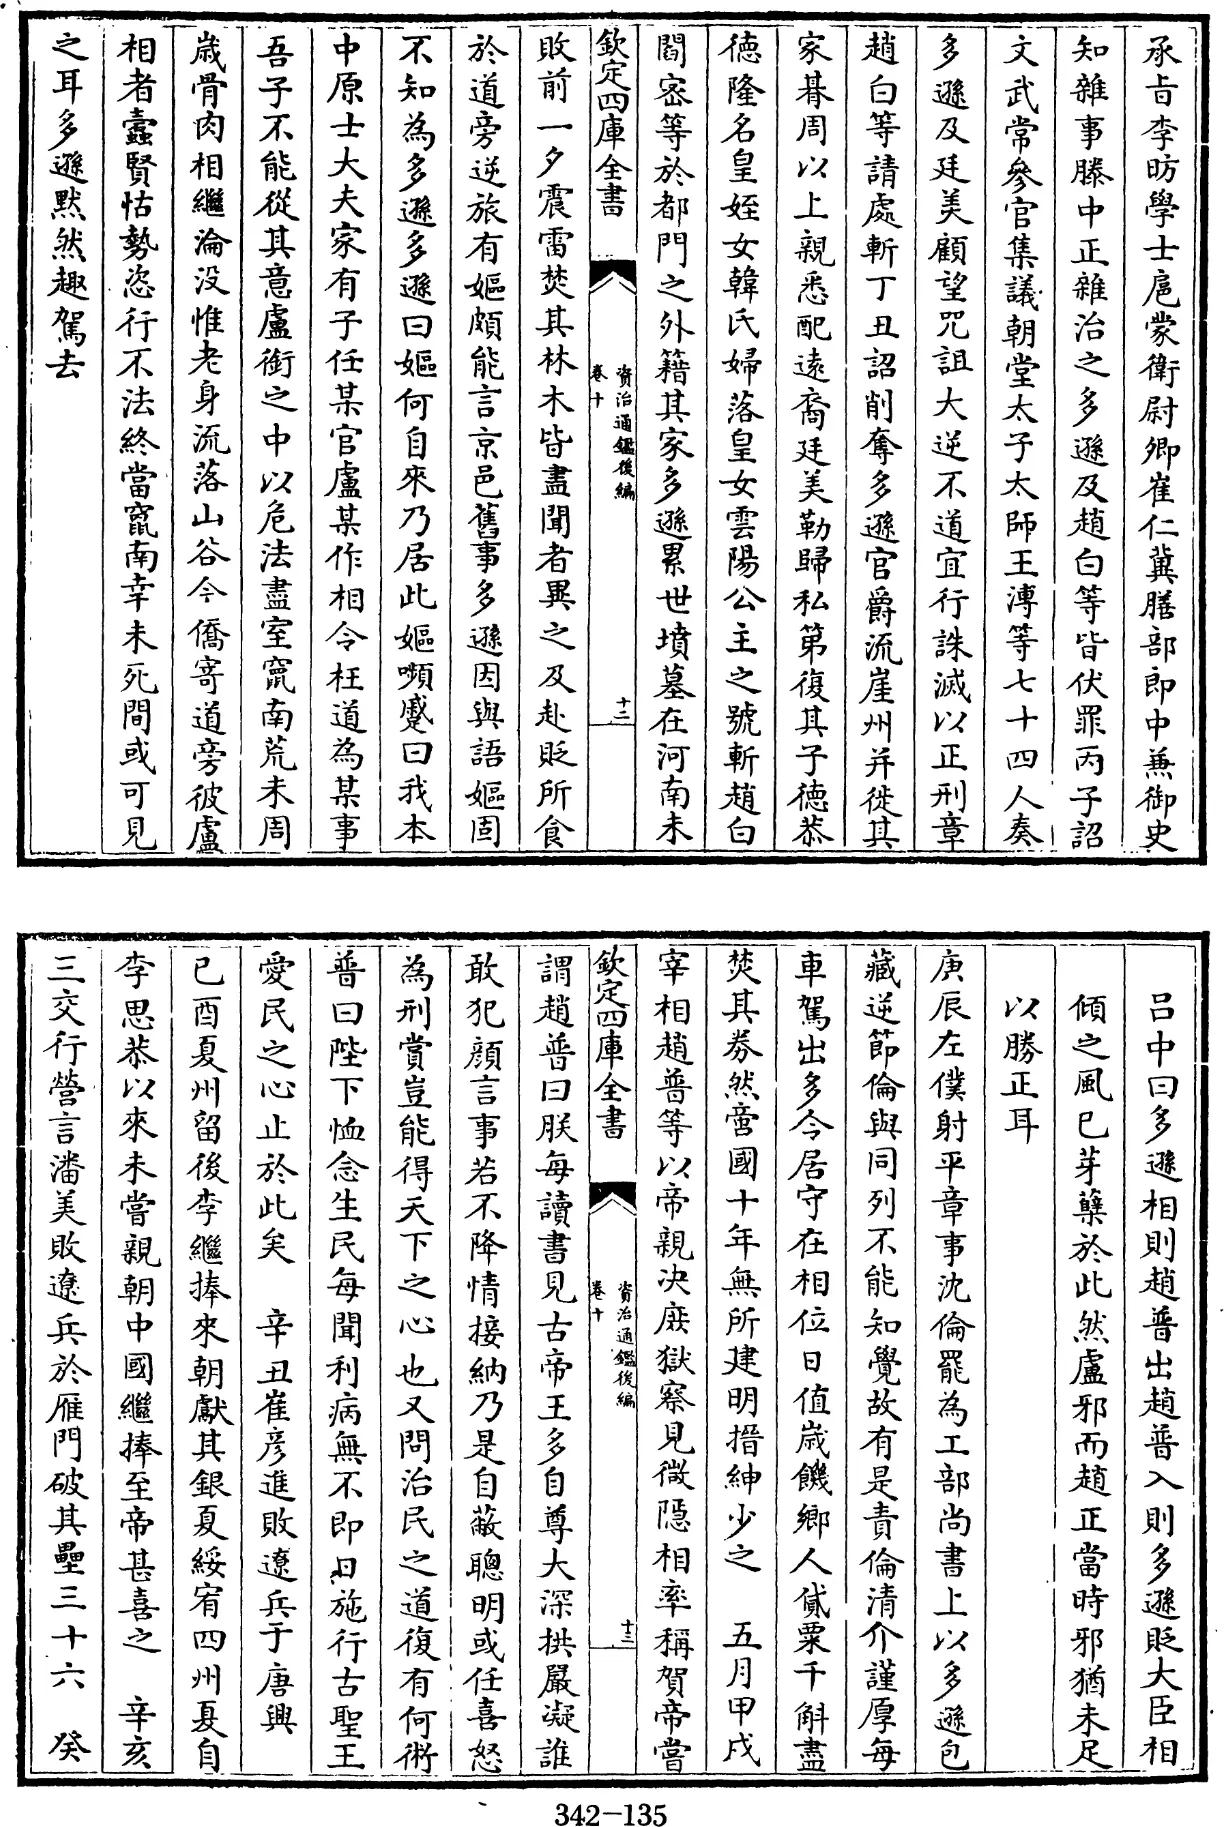 承㫖李昉學士扈蒙衛尉卿崔仁冀膳部郎中兼御史
知雜事滕中正雜治之多遜及趙白等皆伏罪丙子詔
文武常參官集議朝堂太子太師王溥等七十四人奏
多遜及廷美顧望咒詛大逆不道宜行誅滅以正刑章
趙白等請處斬丁丑詔削奪多遜官爵流崖州并徙其
家朞周以上親悉配遠裔廷美勒歸私第復其子德恭
德隆名皇姪女韓氏婦落皇女雲陽公主之號斬趙白
閻密等於都門之外籍其家多遜累世墳墓在河南未
欽定四庫全書
資治通鑑後編
卷十
十二
敗前一夕震雷焚其林木皆盡聞者異之及赴貶所食
於道旁逆旅有嫗頗能言京邑舊事多遜因與語嫗固
不知為多遜多遜曰嫗何自來乃居此嫗嚬蹙曰我本
中原士大夫家有子任某官盧某作相令枉道為某事
吾子不能從其意盧銜之中以危法盡室竄南荒未周
歲骨肉相繼淪没惟老身流落山谷今僑寄道旁彼盧
相者蠹賢怙勢恣行不法終當竄南幸未死間或可見
之耳多遜默然趣駕去
吕中曰多遜相則趙普出趙普入則多遜貶大臣相
傾之風已芽蘖於此然盧邪而趙正當時邪猶未足
以勝正耳
庚辰左僕射平章事沈倫罷為工部尚書上以多遜包
藏逆節倫與同列不能知覺故有是責倫清介謹厚每
車駕出多令居守在相位日值歲饑鄉人貸粟千斛盡
焚其券然當國十年無所建明搢紳少之　五月甲戌
宰相趙普等以帝親决庶獄察見微隱相率稱賀帝嘗
欽定四庫全書
資治通鑑後編
卷十
十三
謂趙普曰朕每讀書見古帝王多自尊大深拱嚴凝誰
敢犯顔言事若不降情接納乃是自蔽聰明或任喜怒
為刑賞豈能得天下之心也又問治民之道復有何術
普曰陛下恤念生民每聞利病無不即日施行古聖王
愛民之心止於此矣　辛丑崔彦進敗遼兵于唐興
己酉夏州留後李繼捧來朝獻其銀夏綏宥四州夏自
李思恭以來未嘗親朝中國繼捧至帝甚喜之　辛亥
三交行營言潘美敗遼兵於雁門破其壘三十六　癸
342-135